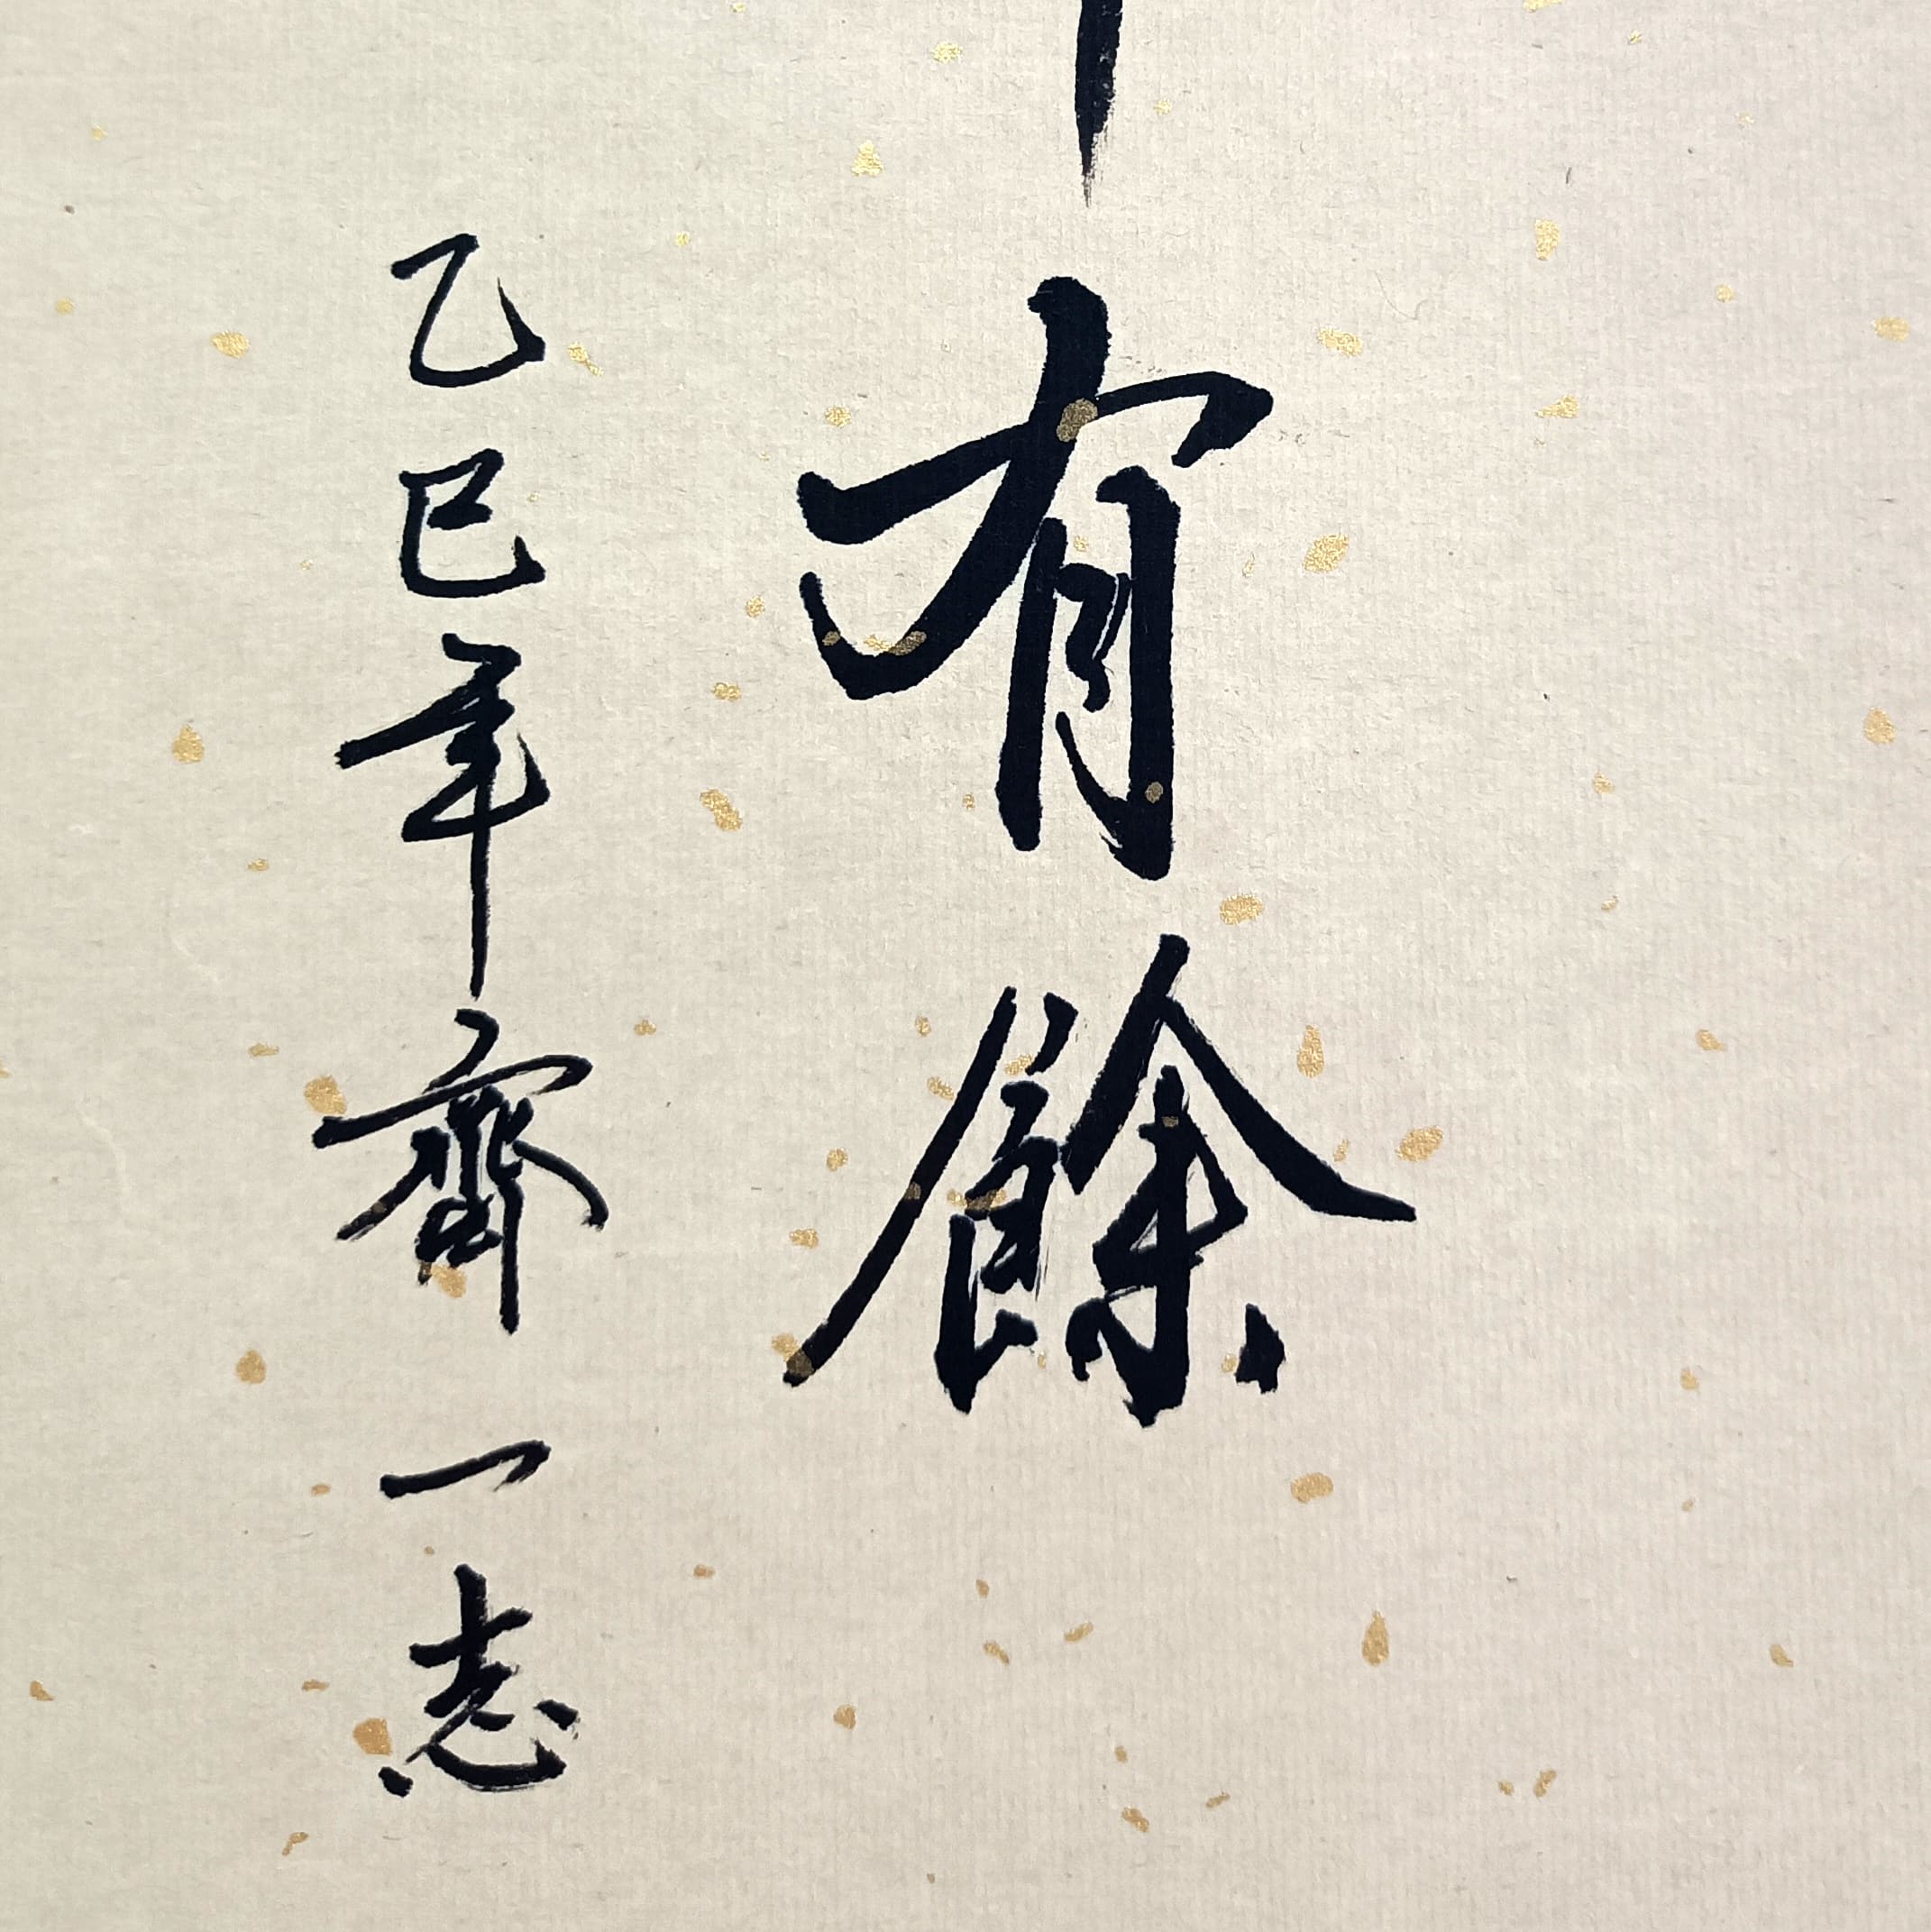 有餘
乙巳年齊一志